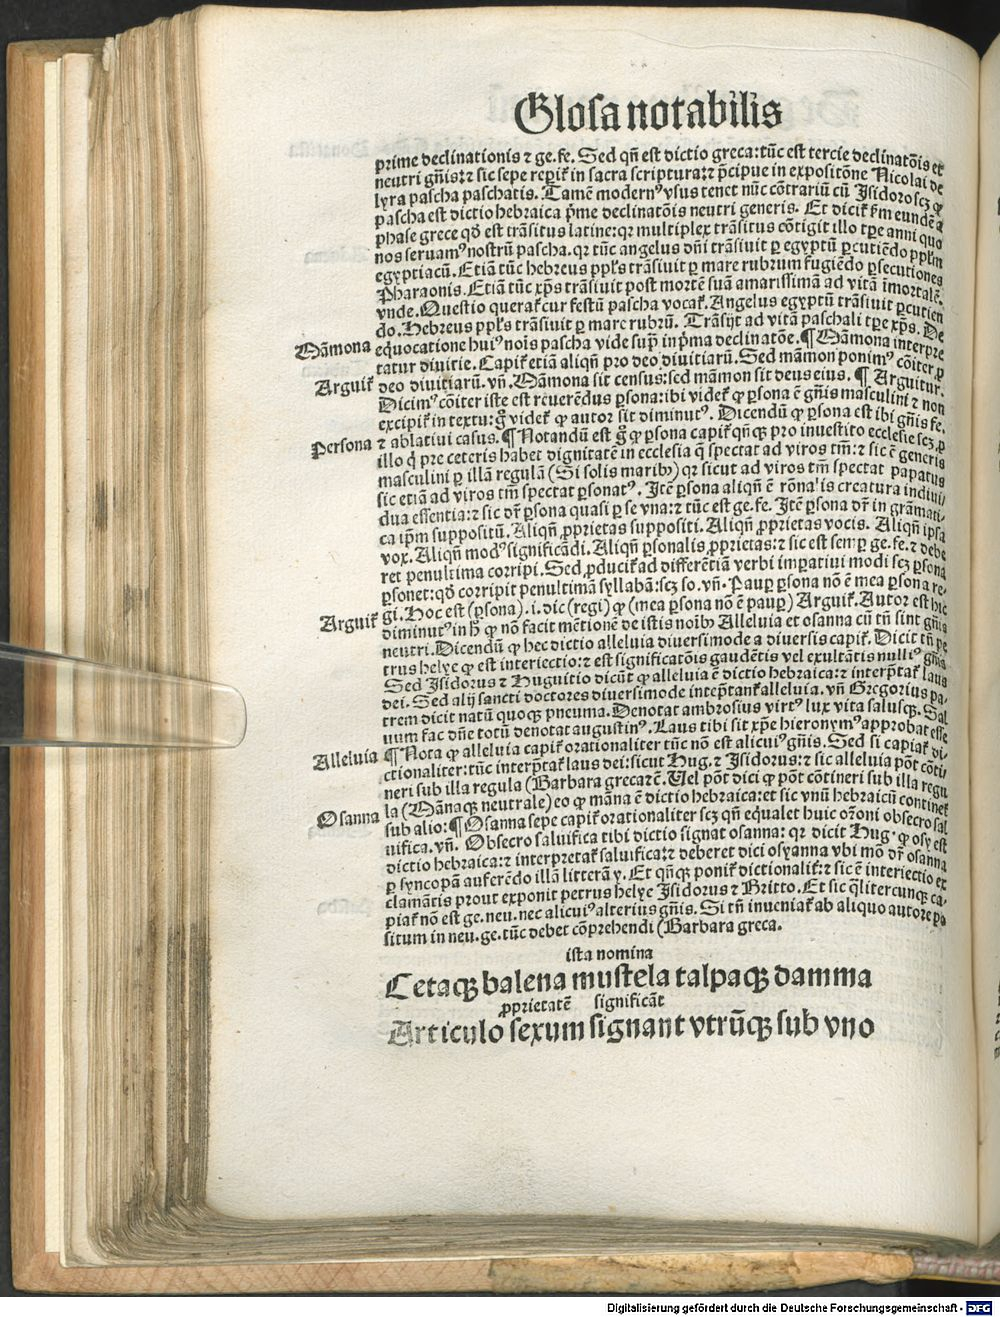 Glosa notabilis
prime declinationis ⁊ ge.fe. Sed qñ est dictio greca:tūc est tercie declinatõis et
neutri gñis:⁊ sic sepe reperit᷑ in sacra scriptura:⁊ p̃cipue in expositõne Nicolai de
lyra pascha paschatis. Tamē modernꝰ vsus tenet nūc cõtrariũ cũ Isidoro scꝫ ꝙ
pascha est dictio hebraica p̃me declinatõis neutri generis. Et dicit᷑ ẜm eundē a
phase grece qd̛ est trãsitus latine:qꝛ multiplex trãsitus cõtigit illo tp̃e anni quo
nos seruamꝰ nostrũ pascha. qꝛ tūc angelus dñi trãsiuit ꝑ egyptũ ꝑcutiēdo pplm̄
egyptiacũ. Etiã tūc hebreus ppl̄s trãsiuit ꝑ mare rubrum fugiēdo ꝑsecutiones
Pharaonis. Etiã tūc xp̃s trãsiuit post mortē suã amarissimã ad vitã īmortalē.
vnde. Questio querat᷑ cur festũ pascha vocat᷑. Angelus egyptũ trãsiuit ꝑcutien
do. Hebreus ppl̄s trãsiuit ꝑ mare rubrũ. Trãsijt ad vitã paschali tp̃e xp̃s. De
Mãmona equocatione huiꝰ nois pascha vide supͥ in p̃ma declinatõe. ¶ Mãmona interpre
tatur diuitie. Capit᷑ etiã aliqñ pro deo diuitiarũ. Sed mãmon ponimꝰ cõiter ꝓ
Arguit᷑ deo diuitiarũ. vñ. Mãmona sit census:sed mãmon sit deus eius. ¶ Arguitur.
Dicimꝰ cõiter iste est reuerēdus ꝑsona:ibi videt᷑ ꝙ ꝑsona ē gñis masculini ⁊ non
excipit᷑ in textu:gͦ videt᷑ ꝙ autor sit diminutꝰ. Dicendũ ꝙ ꝑsona est ibi gñis fe.
Persona ⁊ ablatiui casus. ¶ Notandũ est gͦ ꝙ ꝑsona capit᷑ qñqꝫ pro inuestito ecclesie scꝫ ꝓ
illo q̇ pre ceteris habet dignitatē in ecclesia q̃ spectat ad viros tm̄:⁊ sic ē generis
masculini ꝑ illã regulã (Si solis maribꝰ) qꝛ sicut ad viros tm̄ spectat papatus
sic etiã ad viros tm̄ spectat ꝑsonatꝰ. Itē ꝑsona aliqñ ē rõnal̓is creatura indiui/
dua essentia:⁊ sic dr̃ ꝑsona quasi ꝑ se vna:⁊ tūc est ge.fe. Itē ꝑsona dr̃ in grãmati/
ca ip̄m suppositũ. Aliqñ ꝓprietas suppositi. Aliqñ ꝓprietas vocis. Aliqñ ipsa
vox. Aliqñ modꝰ significãdi. Aliqñ ꝑsonalis ꝓprietas:⁊ sic est semꝑ ge.fe.⁊ debe
ret penultima corripi. Sed ꝓducit᷑ ad differētiã verbi imꝑatiui modi scꝫ ꝑsona
ꝑsonet:qd̛ corripit penultimã syllabã:scꝫ so. vñ. Pauꝑ ꝑsona nõ ē mea ꝑsona re/
gi. Hoc est (ꝑsona). i. dic (regi) ꝙ (mea ꝑsona nõ ē pauꝑ) Arguit᷑. Autor est hic
Arguit᷑ diminutꝰ in hͦ ꝙ nõ facit mētionē de istis noībꝰ Alleluia et osanna cũ tñ sint gñis
neutri. Dicendũ ꝙ hec dictio alleluia diuersimode a diuersis capit᷑. Dicit tñ pe
trus helye ꝙ est interiectio:⁊ est significatõis gaudētis vel exultãtis nulliꝰ gñis
Sed Isidorus ⁊ Huguitio dicũt ꝙ alleluia ē dictio hebraica:⁊ interp̃tat᷑ laus
dei. Sed alij sancti doctores diuersimode intep̃tant᷑ alleluia. vñ Gregorius pa/
trem dicit natũ quoqꝫ pneuma. Denotat ambrosius virtꝰ lux vita salusqꝫ. Sal
uum fac dñe totũ denotat augustinꝰ. Laus tibi sit xp̃e hieronymꝰ approbat esse
Alleluia ¶ Nota ꝙ alleluia capit᷑ orationaliter tūc nõ est alicuiꝰ gñis. Sed si capiat᷑ di/
ctionaliter:tūc interp̃tat᷑ laus dei:sicut Hug. ⁊ Isidorus:⁊ sic alleluia põt cõti/
neri sub illa regula (Barbara greca⁊c̄. Uel põt dici ꝙ põt cõtineri sub illa regu
la (Mãnaqꝫ neutrale) eo ꝙ mãna ē dictio hebraica:et sic vnũ hebraicũ continet᷑
Osanna sub alio: ¶ Osanna sepe capit᷑ orationaliter scꝫ qñ equalet huic or̃oni obsecro sal
uifica. vñ. Obsecro saluifica tibi dictio signat osanna: qꝛ dicit Hug. ꝙ osy est
dictio hebraica:⁊ interpretat᷑ saluifica:⁊ deberet dici osyanna vbi mõ dr̃ osanna
ꝑ syncopã auferēdo illã litterã y. Et qñqꝫ ponit᷑ dictionalit᷑:⁊ sic ē interiectio ex
clamãtis prout exponit petrus helye Isidorus ⁊ Britto. Et sic q̃litercunqꝫ ca/
piat᷑ nõ est ge.neu. nec alicuiꝰ alterius gñis. Si tñ inueniat᷑ ab aliquo autore po
situm in neu.ge.tūc debet cõprehendi (Barbara greca.
ista nomina
Cetaqꝫ balena mustela talpaqꝫ damma
ꝓprietatē significãt
Articulo sexum signant vtrũqꝫ sub vno
Digitalisierung gefördert durch die Deutsche Forschungsgemeinschaft - DFG